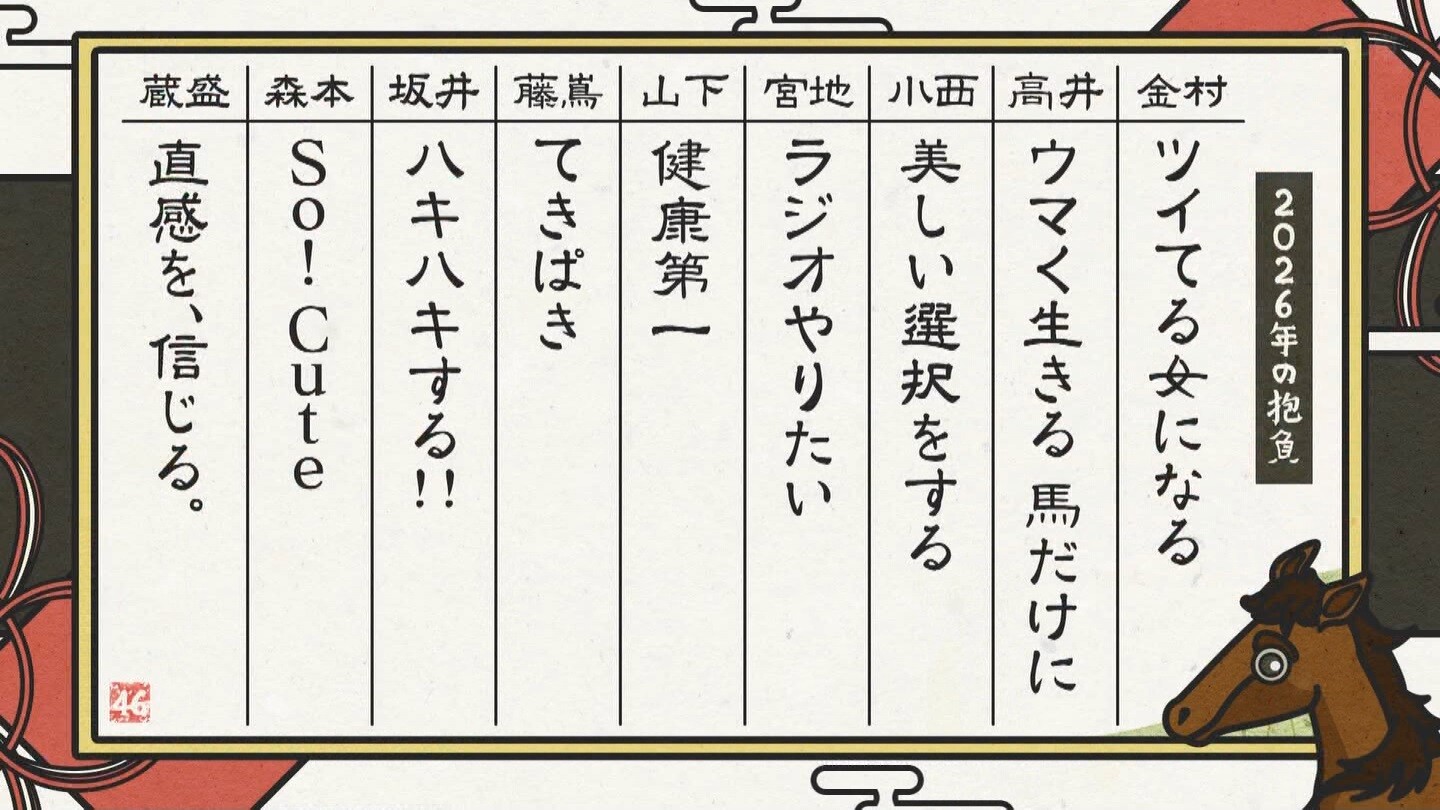 2026年の抱負
金村
ツイてる女になる
高井
ウマく生きる 馬だけに
小西
美しい選択をする
宮地
ラジオやりたい
山下
健康第一
藤嶌
てきぱき
坂井
ハキハキする!!
森本
So! Cute
蔵盛
直感を、信じる。
46